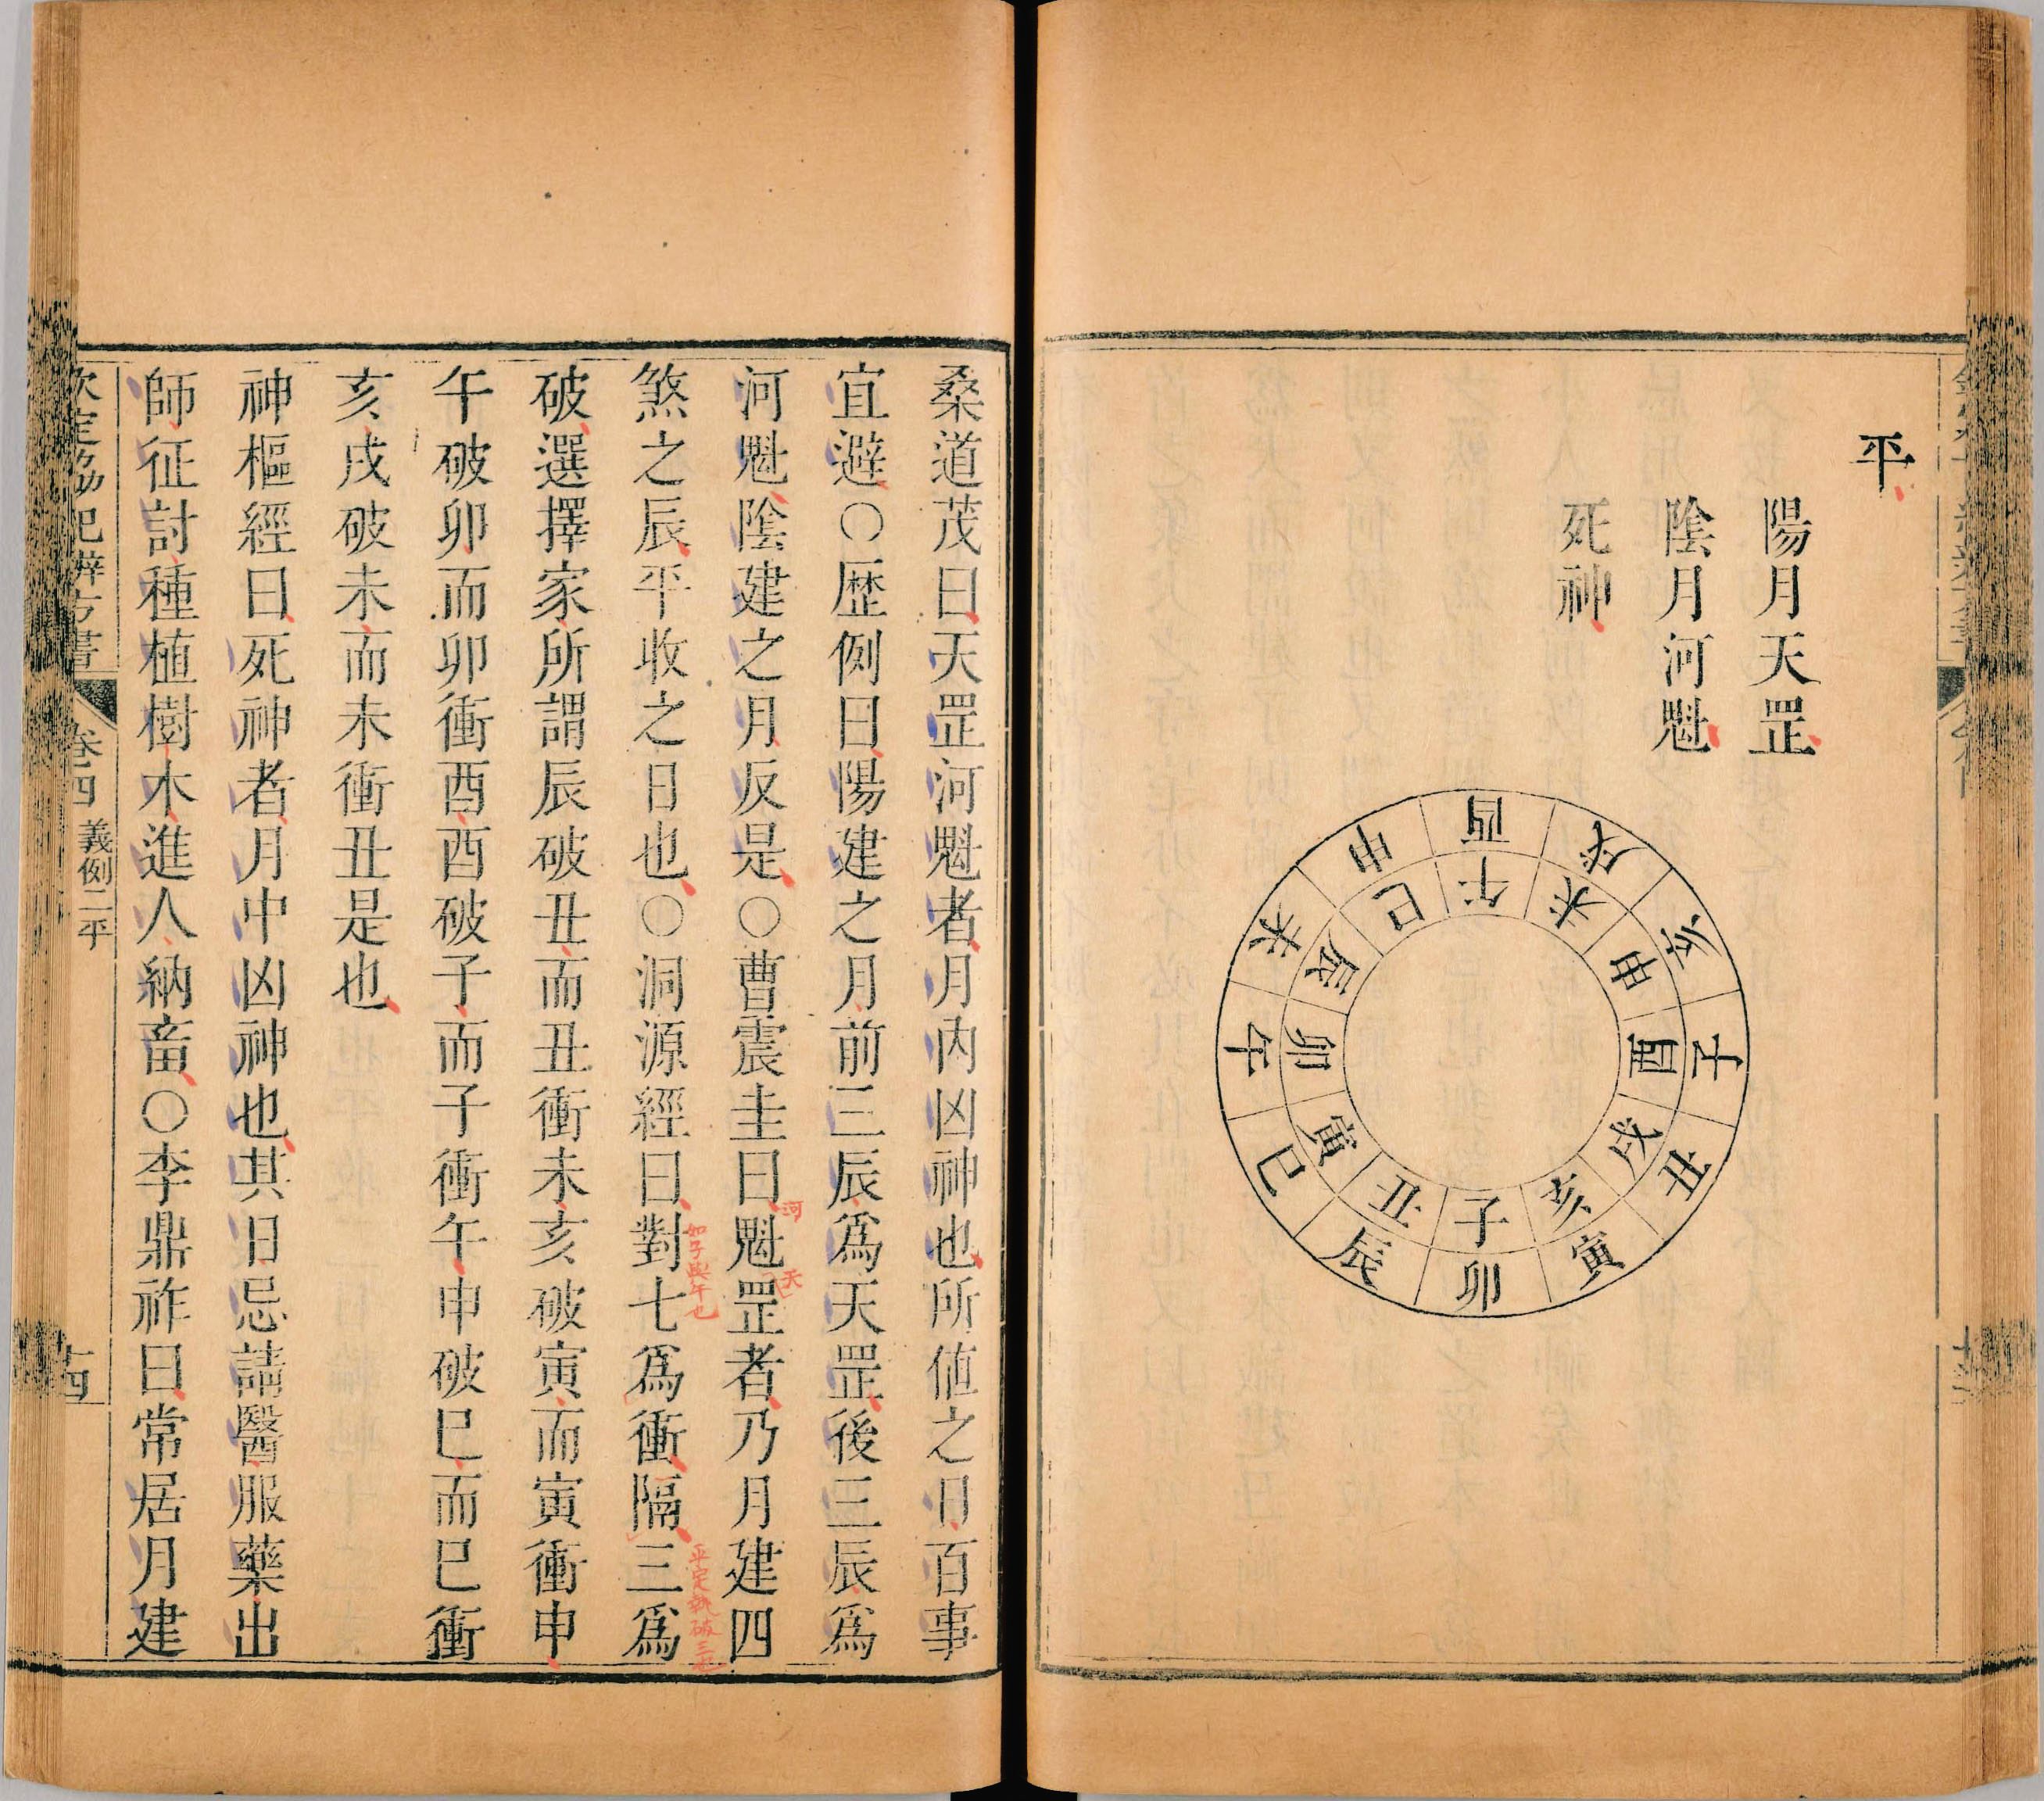 平
陽月天罡
陰月河魁
死神
子丑寅卯辰巳午未申酉戌亥
酉戌亥子丑寅卯辰巳午未申
桑道茂曰天罡河魁者月內凶神也所値之日百事
宜避○歴例曰陽建之月前三辰爲天罡後三辰爲
河魁陰建之月反是○曹震圭曰魁罡者乃月建四
河
天
煞之辰平收之日也○洞源經曰對七爲衝隔三爲
如子與午也
平定執破三也
破選擇家所謂辰破丑而丑衝未亥破寅而寅衝申
午破卯而卯衝酉酉破子而子衝午申破巳而巳衝
亥戌破未而未衝丑是也
神樞經曰死神者月中凶神也其日忌請醫服藥出
師征討種植樹木進人納畜○李鼎祚曰常居月建
欽定協紀辨方書
卷四
義例二平
十四